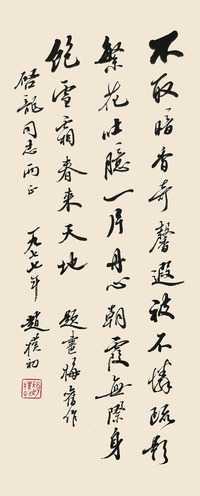 不取暗香奇馨遐被不憐疏影
繁花吐臆一片丹心朝霞無際身
飽雪霜春來天地 題畫梅舊作
啓龍同志两正
一九七七年 趙樸初